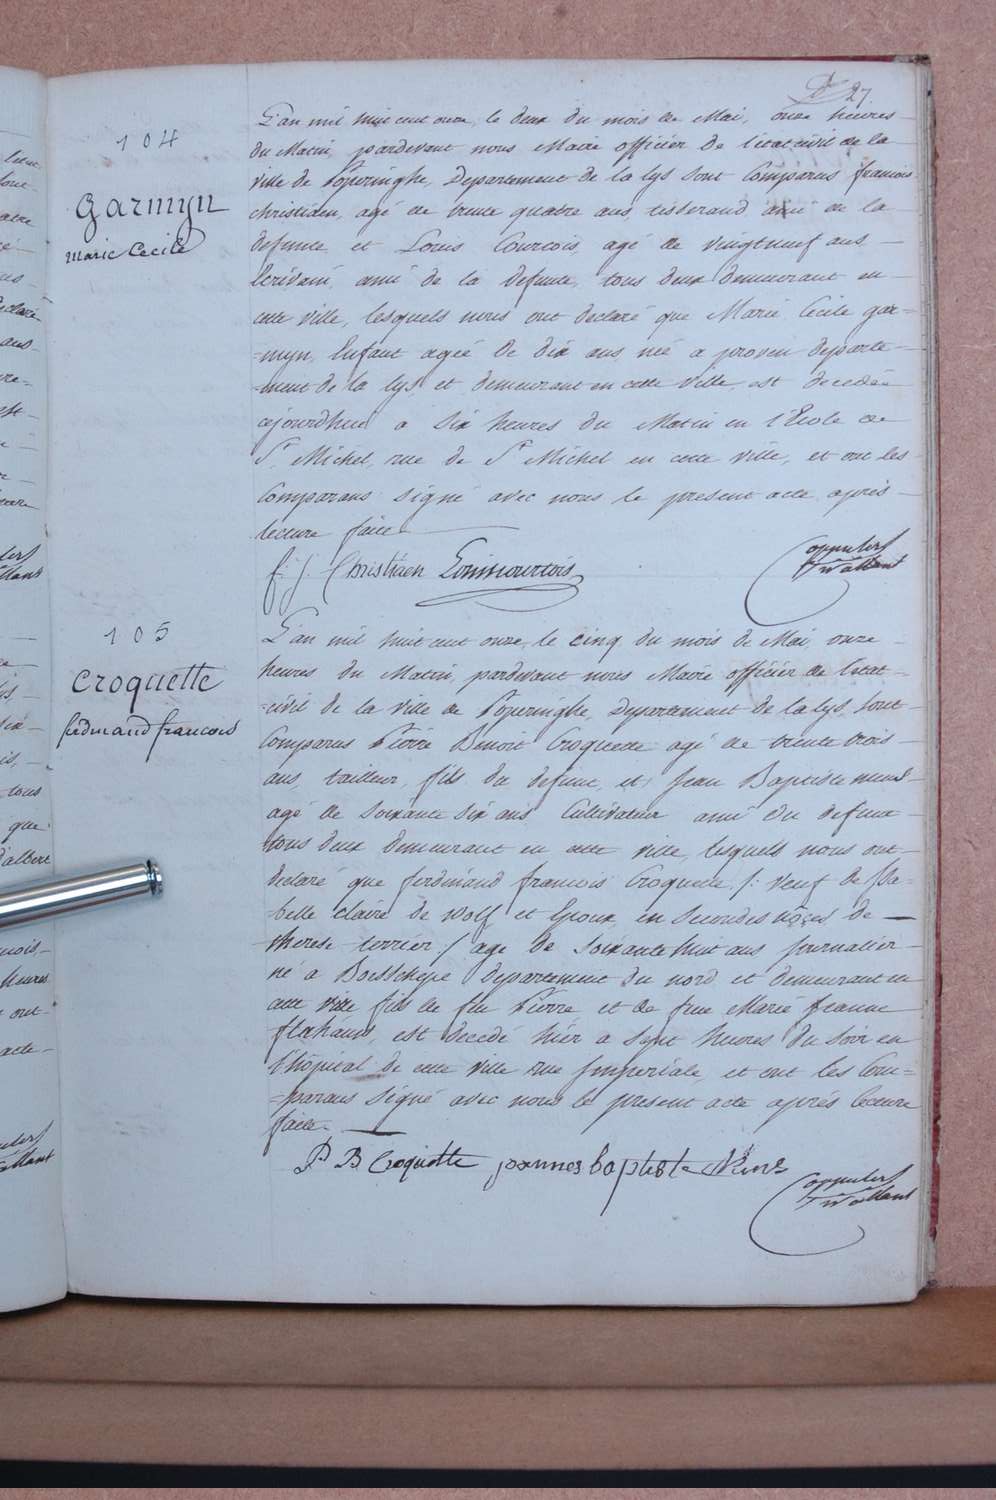 27
104
Garmyn
marie Cecile
L'an mil huit cent onze, le deux du mois de Mai, onze heures
du Matin, pardevant nous Maire officier de l'etat civil de la
ville de Poperinghe, Departement de la lys sont Comparus francois
christiaen, agé de trente quatre ans, tisserand ami de la
defunte et Louis Courtois, agé de vingtneuf ans —
Ecrivain, ami de la defunte, tous deux demeurant en —
cette ville, lesquels nous ont declaré que Marie Cecile gar=
=myn, Enfant ageé de dix ans, née a proven departe-
=ment de la lys, et demeurant en cette ville est decedée
aujourdhui a six heures du Matin en l'Ecole de
St. Michel, rue de St Michel en cette ville, et ont les
Comparans signé avec nous le present acte après —
lecture faite
f. j. Christiaen Louis courtois
105
Croquette
ferdinand francois
L'an mil huit cent onze, le cinq du mois de Mai, onze —
heures du Matin, pardevant nous Maire officier de l'etat —
=civil de la ville de Poperinghe, Departement de la lys, sont
Comparus Pierre Benoit Croquette agé de trente trois —
ans, tailleur, fils du defunt, et Jean Baptiste
agé de soixante six ans Cultivateur ami du defunt —
tous deux demeurant en cette ville, lesquels nous ont —
declaré que ferdinand francois Croquette /: veuf de Isa=
=belle claire de wolf et Epoux en secondes nôces de —
therese terrier :/ agé de soixante huit ans journalier —
né a Boesschepe departement du nord, et demeurant en
cette ville fils de feu Pierre, et de feue Marie Jeanne
est decedé hier a sept heures du soir en
l'hôpital de cette ville rue Imperiale, et ont les Com=
=parans signé avec nous le present acte après lecture
faite. —
P B Croquette joannes baptiste